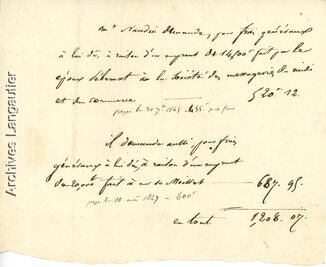 Mr Naudin demande, pour frais généraux
à lui dûs, à raison d'un emprunt de 14500f fait par les
époux Sébenat à la Société des messageries du midi
et du commerce 520. 12.
payé le 30 7bre 1845
il demande aussi, pour frais
généraux à lui dûs, à raison d'un emprunt
de 20,000f fait à Mr 687. 95.
payé le 10 1847 600f
en tout 1,208. 07.
Archives Langautier